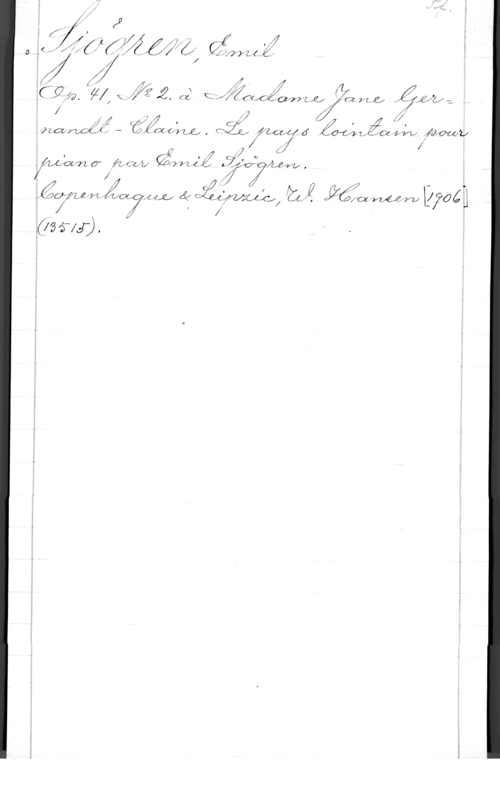 Sjögren, Emil
Op. 41, Nº 2. à Madame Jane Ger=
nandt-Claine. Le pays lointain pour
piano par Emil Sjögren.
Copenhague & Leipzic, W. Hansen [1906]
(13515).